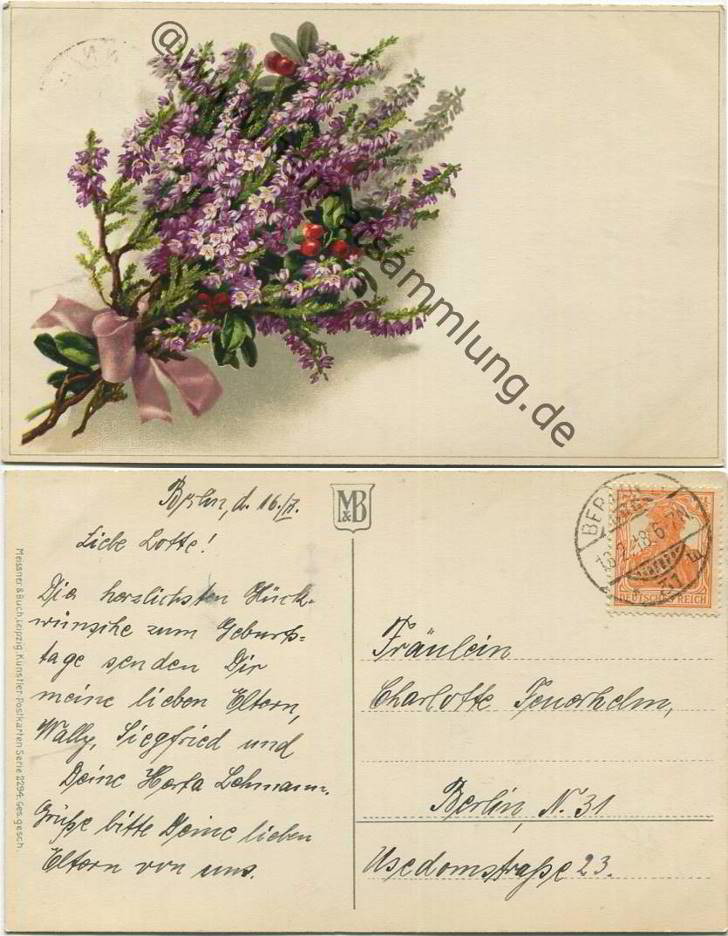 @
tsammlung.de
Berlin, d. 16./7.
Liebe Lotte!
Die herzlichsten Glück-
wünsche zum Geburts-
tage senden Dir
meine lieben Eltern,
Wally, Siegfried und
Deine Herta Lehmann.
Grüße bitte Deine lieben
Eltern von uns.
Meissner & Buch, Leipzig. Künstler-Postkarten Serie 2294. Ges. gesch.
M&B
BERLIN
31
DEUTSCHES REICH
Fräulein
Charlotte
Berlin, N. 31
Usedomstraße 23.